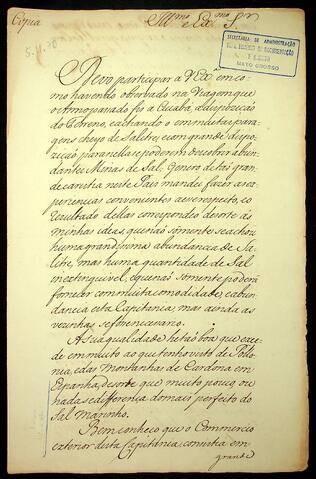 Copia
Ill.mo e Ex.mo S.r
SECRETARIA DE ADMINISTRAÇÃO
E ARQUIVO
MATO GROSSO
Devo participar a V. Ex.ª em co-
mo havendo observado na Viagem que
o Anno passado fiz a Cuiabá, a dispozição
do Terreno, e achando o em muitas para-
gens cheyo de Salitre, e com grande dispo-
zicão para nella se poderem descobrir abun-
dantes Minas de Sal, genero de tão gran-
de carestia neste Pais mandei fazer as ex-
periencias convenientes a esse respeito, e o
rezultado dellas correspondeo de sorte ás
minhas ideas, que não sómente se achou
huma grandissima abundancia de Sa-
litre, mas huma quantidade de Sal
inextinguivel, e que não sómente poderá
fornecer com muita comodidade, e abun-
dancia esta Capitania, mas ainda as
vezinhas, se for necessario.
A sua qualidade he taõ boa, que exce-
de em muito ao que tenho visto de Pollo-
nia, e das Montanhas de Cardona em
Espanha, de sorte que muito pouco, ou
nada se differença do mais perfeito do
Sal Marinho.
Bem conheço que o Commercio
exterior desta Capitania, consistia em
grande